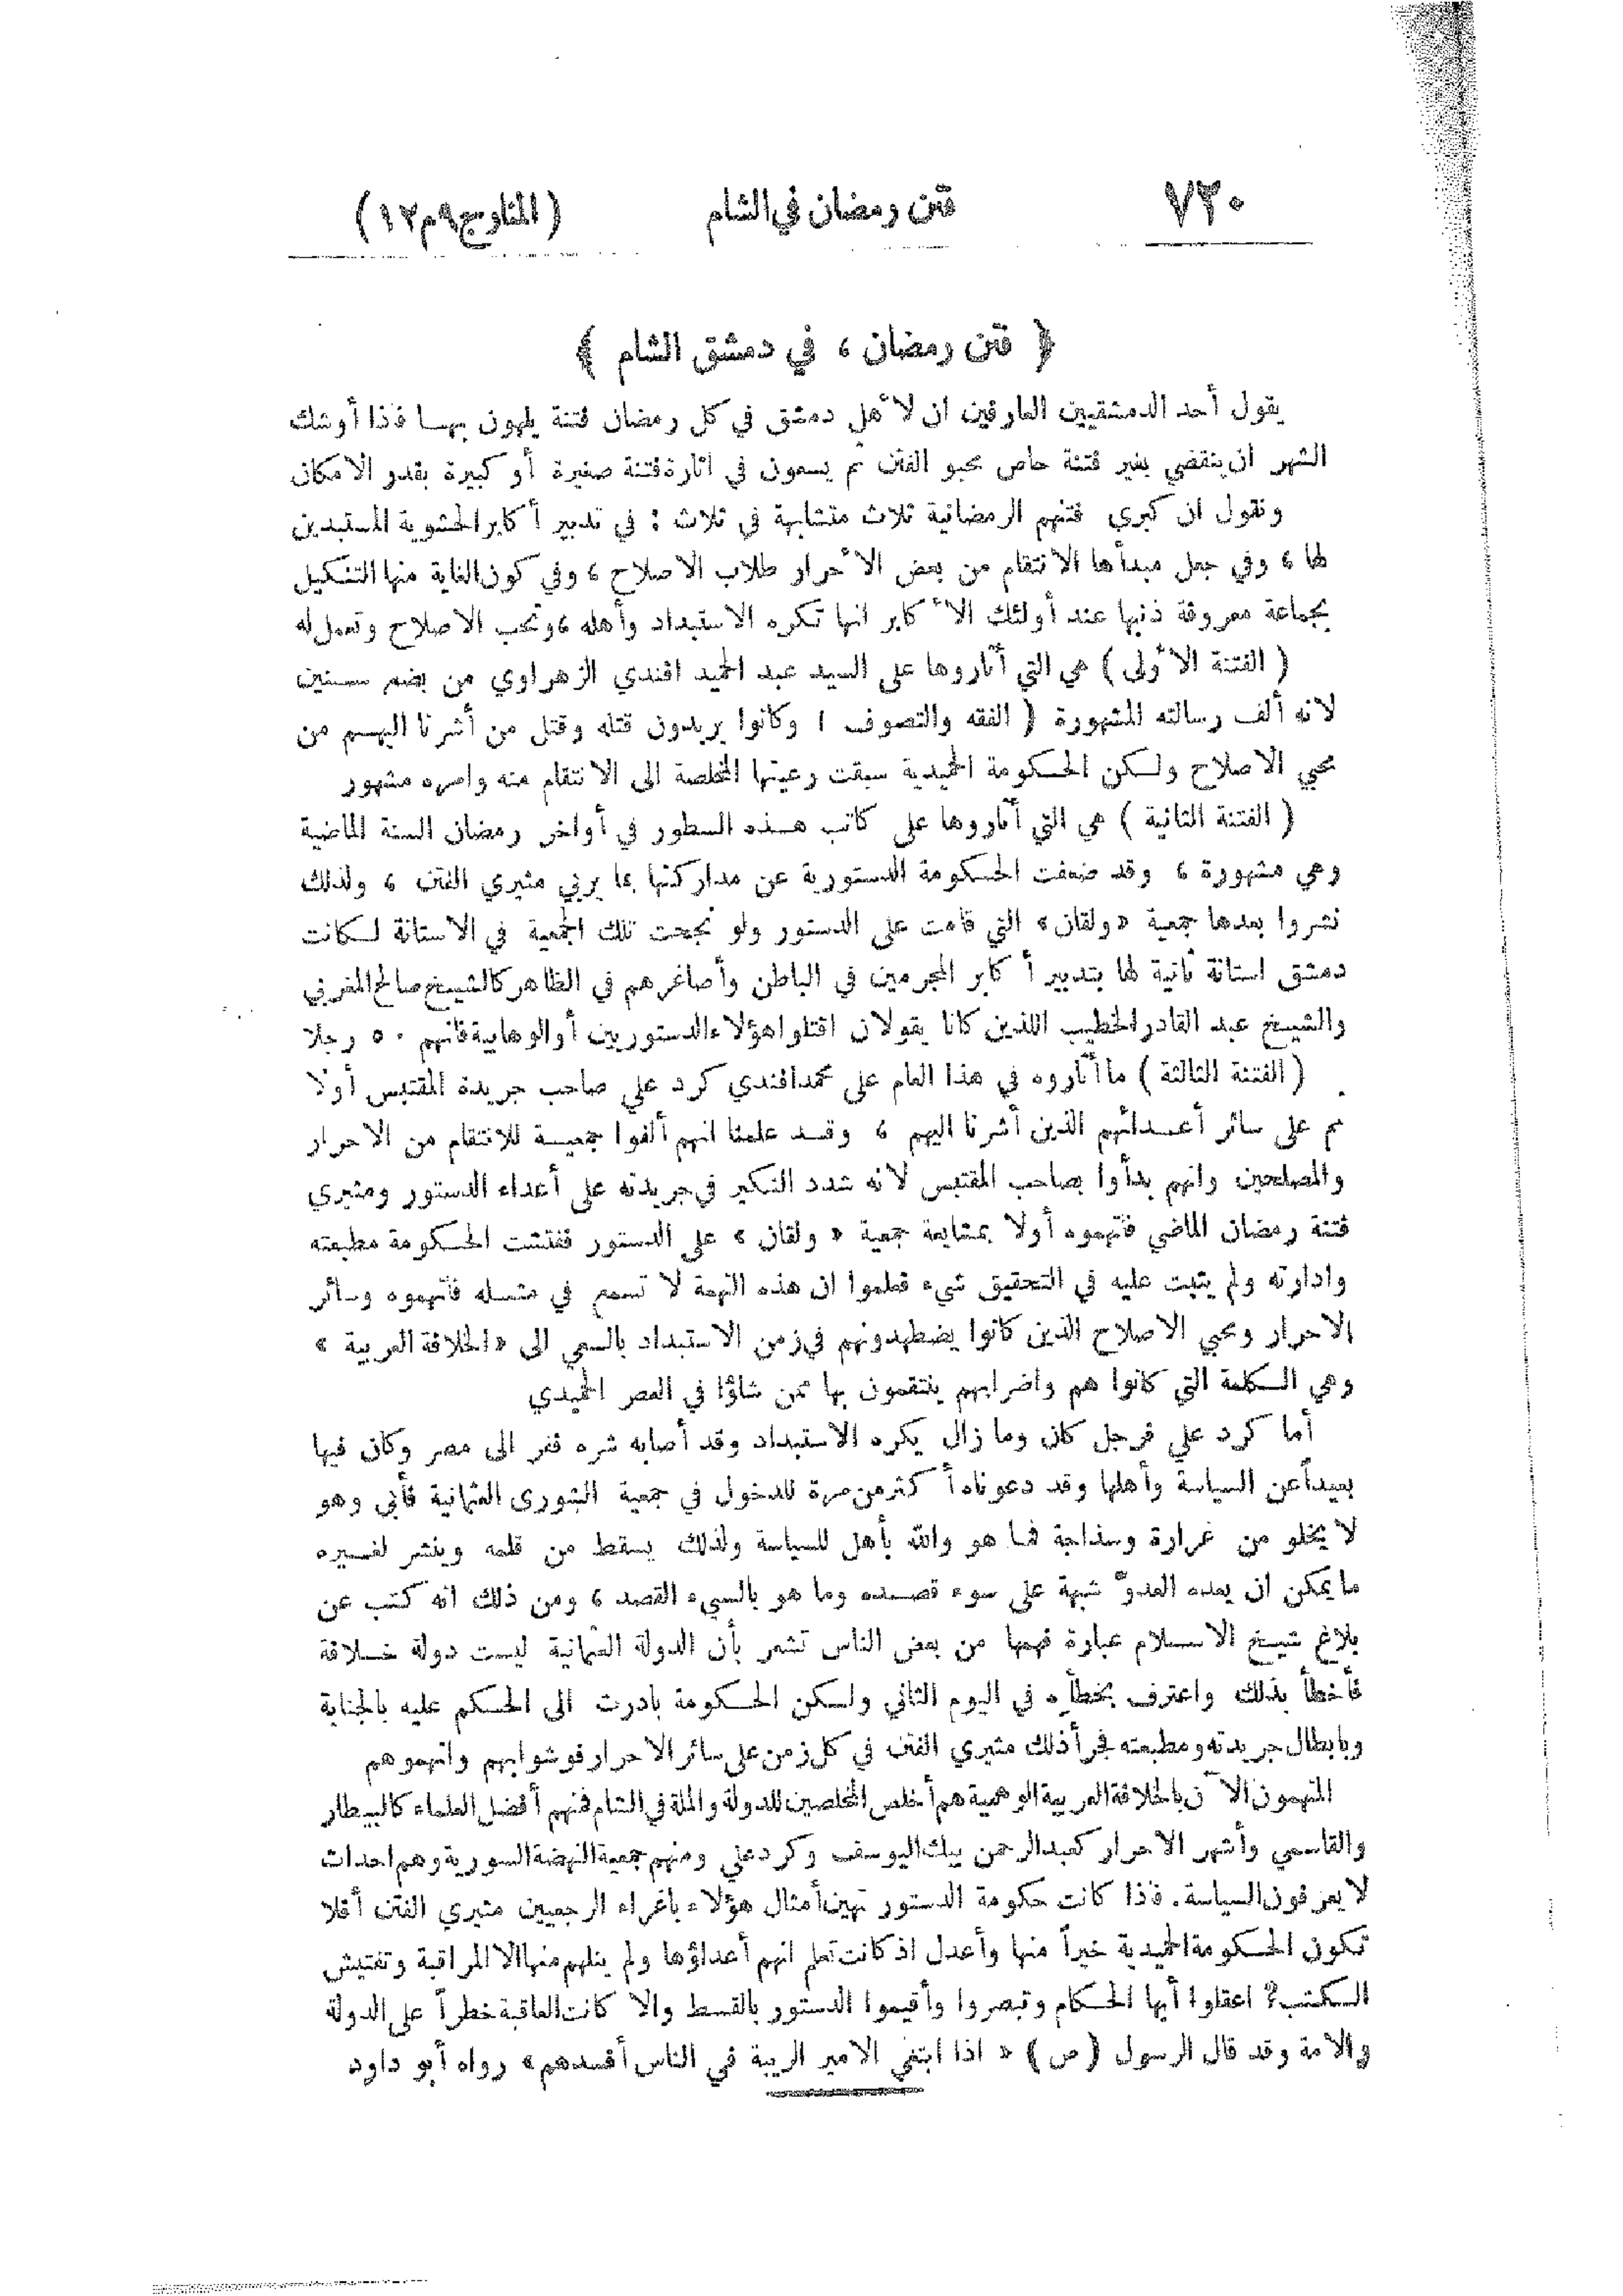 ٧٢٠ فتن رمضان في الشام (المنار ج٩ م١٢)
﴿ فتن رمضان ، في دمشق الشام ﴾
يقول أحد الدمشقيين العارفين ان لأهل دمشق في كل رمضان فتنة يلهون بها فاذا أوشك
الشهر ان ينقضي بغير فتنة حاص محبو الفتن ثم يسعون في اثارة فتنة صغيرة أو كبيرة بقدر الامكان
ونقول ان كبري فتنهم الرمضانية ثلاث متشابهة في ثلاث : في تدبير أكابر الحشوية المستبدين
لها ، وفي جعل مبدأها الانتقام من بعض الأحرار طلاب الاصلاح ، وفي كون الغاية منها التنكيل
بجماعة معروفة ذنبها عند أولئك الأكابر انها تكره الاستبداد وأهله ، وتحب الاصلاح وتعمل له
( الفتنة الأولى ) هي التي أثاروها على السيد عبد الحميد افندي الزهراوي من بضع سنين
لانه ألف رسالته المشهورة ( الفقه والتصوف ) وكانوا يريدون قتله وقتل من أشرنا اليهم من
محبي الاصلاح ولكن الحكومة الحميدية سبقت رعيتها المخلصة الى الانتقام منه وامره مشهور
( الفتنة الثانية ) هي التي أثاروها على كاتب هذه السطور في أواخر رمضان السنة الماضية
وهي مشهورة ، وقد ضعفت الحكومة الدستورية عن مداركتها بما يربي مثيري الفتن ، ولذلك
نشروا بعدها جمعية «ولقان» التي قامت على الدستور ولو نجحت تلك الجمعية في الاستانة لكانت
دمشق استانة ثانية لها بتدبير أكابر المجرمين في الباطن وأصاغرهم في الظاهر كالشيخ صالح المغربي
والشيخ عبد القادر الخطيب اللذين كانا يقولان اقتلوا هؤلاء الدستوريين أو الوهابية فانهم ٥٠ رجلا
( الفتنة الثالثة ) ما أثاروه في هذا العام على محمد افندي كرد علي صاحب جريدة المقتبس أولا
ثم على سائر أعدائهم الذين أشرنا اليهم ، وقد علمنا انهم ألفوا جمعية للانتقام من الاحرار
والمصلحين وانهم بدأوا بصاحب المقتبس لانه شدد النكير في جريدته على أعداء الدستور ومثيري
فتنة رمضان الماضي فاتهموه أولا بمشايعة جمعية « ولقان » على الدستور ففتشت الحكومة مطبعته
وادارته ولم يثبت عليه في التحقيق شيء فعلموا ان هذه التهمة لا تسمع في مثله فاتهموه وسائر
الاحرار ومحبي الاصلاح الذين كانوا يضطهدونهم في زمن الاستبداد بالسعي الى «الخلافة العربية »
وهي الكلمة التي كانوا هم واضرابهم ينتقمون بها ممن شاؤا في العصر الحميدي
أما كرد علي فرجل كان وما زال يكره الاستبداد وقد أصابه شره ففر الى مصر وكان فيها
بعيداً عن السياسة وأهلها وقد دعوناه أكثر من مرة للدخول في جمعية الشورى العثمانية فأبى وهو
لا يخلو من غرارة وسذاجة فما هو والله بأهل للسياسة ولذلك يسقط من قلمه وينشر لغيره
ما يمكن ان يعده العدوّ شبهة على سوء قصده وما هو بالسيء القصد ، ومن ذلك انه كتب عن
بلاغ شيخ الاسلام عبارة فهمها من بعض الناس تشعر بأن الدولة العثمانية ليست دولة خلافة
فأخطأ بذلك واعترف بخطأه في اليوم الثاني ولكن الحكومة بادرت الى الحكم عليه بالجناية
وبابطال جريدته ومطبعته فجرأ ذلك مثيري الفتن في كل زمن على سائر الاحرار فوشوا بهم واتهموهم
المتهمون الآن بالخلافة العربية الوهمية هم أخلص المخلصين للدولة والملة في الشام فمنهم أفضل العلماء كالبيطار
والقاسمي وأشهر الاحرار كعبد الرحمن بيك اليوسف وكرد علي ومنهم جمعية النهضة السورية وهم احداث
لا يعرفون السياسة . فاذا كانت حكومة الدستور تهين أمثال هؤلاء باغراء الرجعيين مثيري الفتن أفلا
تكون الحكومة الحميدية خيراً منها وأعدل اذ كانت تعلم انهم أعداؤها ولم ينلهم منها الا المراقبة وتفتيش
الكتب؟ اعقلوا أيها الحكام وتبصروا وأقيموا الدستور بالقسط والا كانت العاقبة خطراً على الدولة
والامة وقد قال الرسول (ص) « اذا ابتغى الامير الريبة في الناس أفسدهم » رواه أبو داود